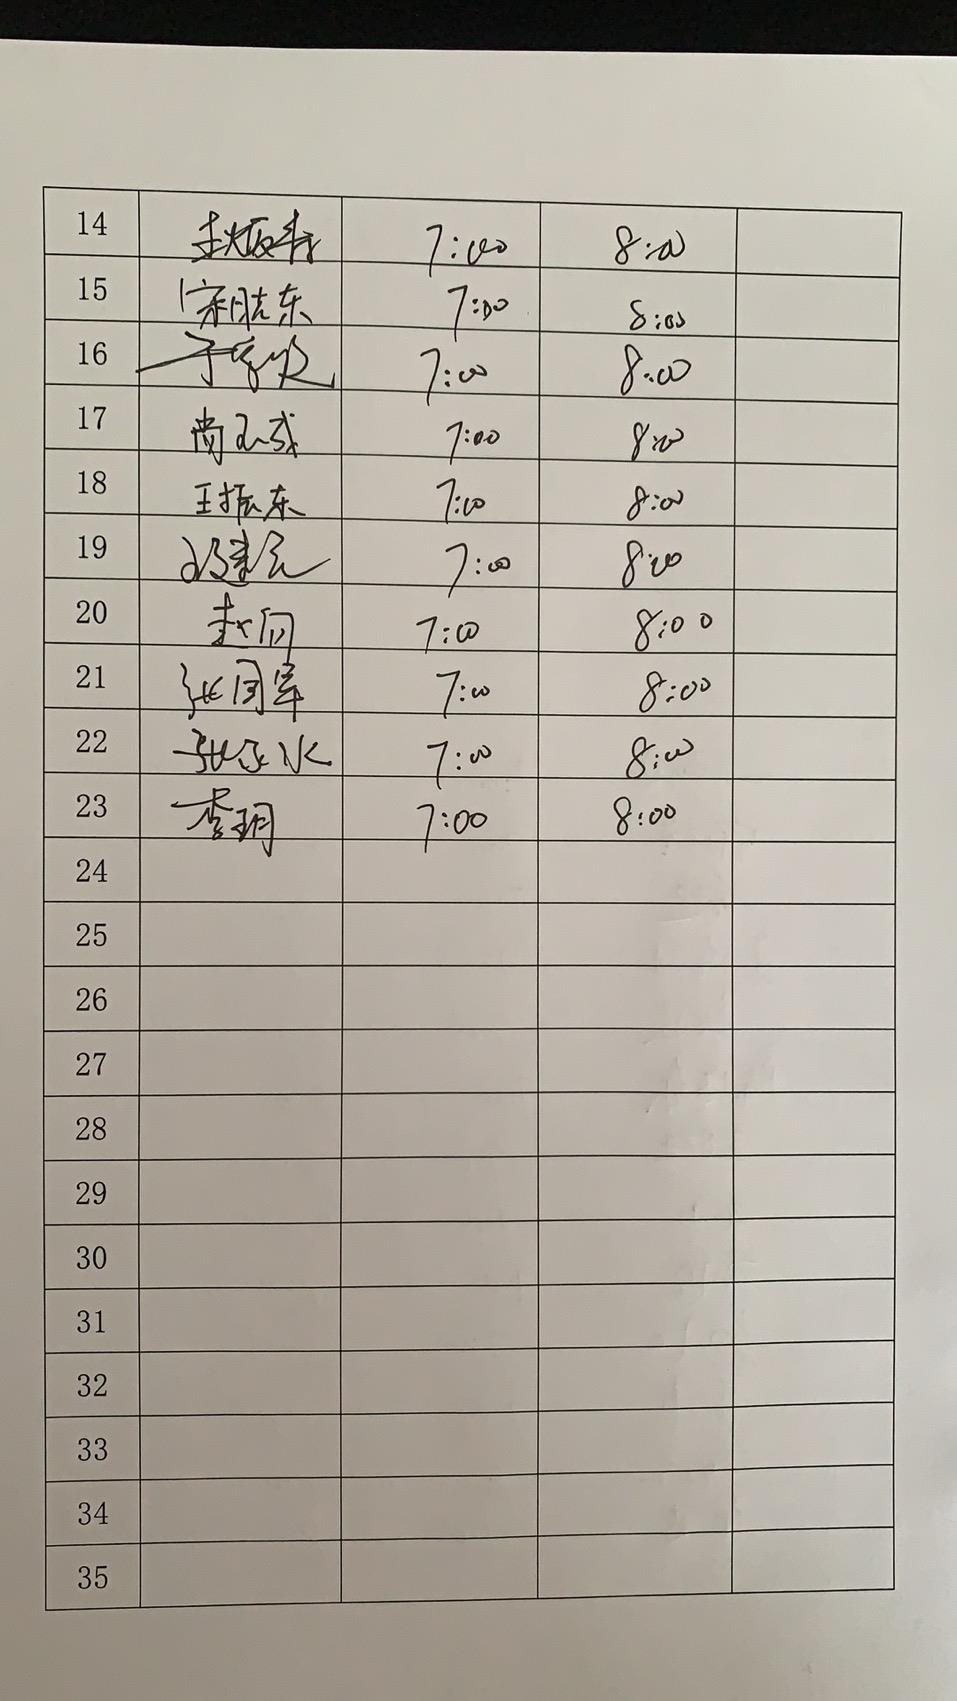 14 7:00 8:00
15 宋胜东 7:00 8:00
16 7:00 8:00
17 尚 7:00 8:00
18 王振东 7:00 8:00
19 冯建 7:00 8:00
20 赵 7:00 8:00
21 张国军 7:00 8:00
22 张 7:00 8:00
23 李玥 7:00 8:00
24
25
26
27
28
29
30
31
32
33
34
35